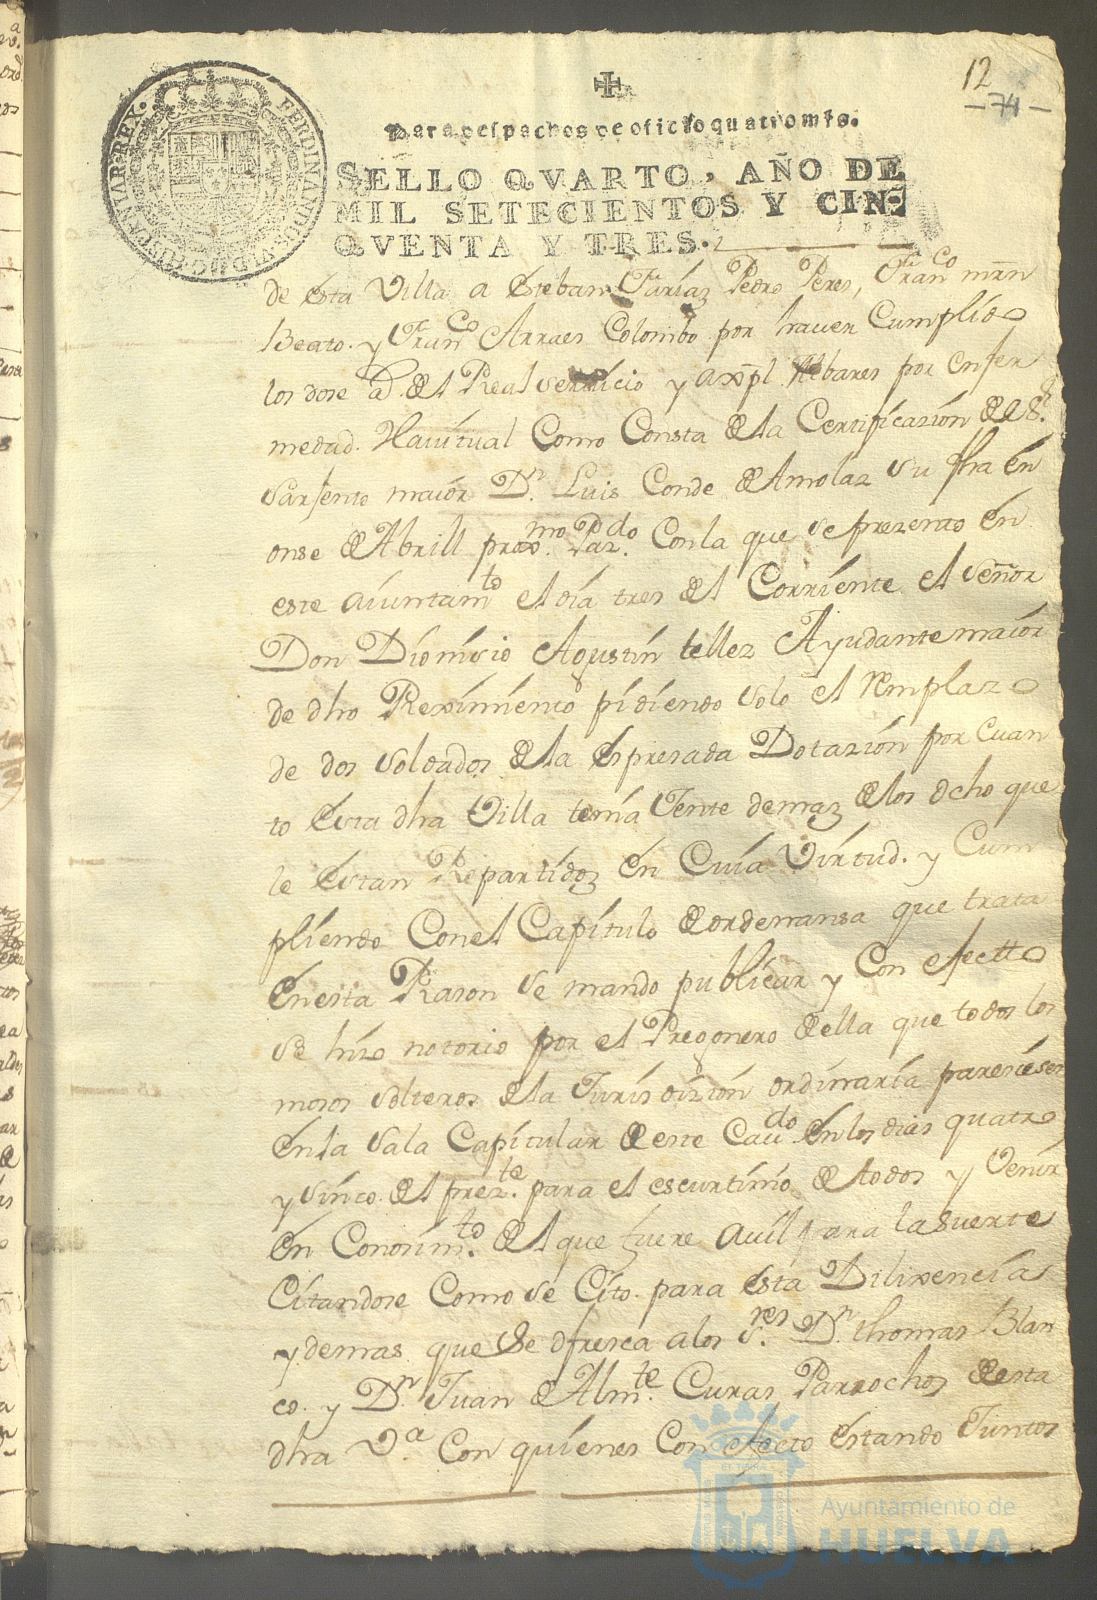 12
- 74 -
Para despachos de oficio quatro mrs.
SELLO QVARTO, AÑO DE
MIL SETECIENTOS Y CIN-
QVENTA Y TRES.
FERDINANDUS.VI.D.G.HISPANIAR.REX.
de esta Villa a Esteban Farias Pedro Peres, Franco mrn
Beato. y Franco Arraes Colombo por haver Cumplido
los dose ad. del Real servicio y axpl Albares por enfer
medad. Havitual Como Consta de la Certificazion del Sr.
sarjento maior Dn. Luis Conde de Amolaz su fha en
onse de Abrill proxmo. Pazdo. Con la que se prezento en
este aiuntamto el dia tres del Corriente el señor
Don Dionisio Agustin tellez Ayudante maior
de dho Reximiento pidiendo solo el remplazo
de dos soldados de la espresada Dotazion por cuan
to esta dha Villa tenia Jente demaz de los ocho que
le estan Repartidoz en Cuia Virtud. y Cum
pliendo Con el Capitulo de ordenansa que trata
en esta Rason se mando publicar y Con efectto
se hizo notorio por el Pregonero de ella que todos los
mosos solteros de la Jurisdizion ordinaria paresiesen
en la sala Capitular de este Cavdo. en los dias quatro
y sinco. del prezte. para el escurtinio de todos y Venir
en Conosimto. del que fuere avil para la suerte
Citandose Como se Cito. para esta Dilixencia
y demas que se ofresca a los sres. Dn. thomas Blan
co. y Dn. Juan de Almte. Curas Parrochos de esta
dha Va. Con quienes Con efecto estando Juntos
Ayuntamiento de
HUELVA